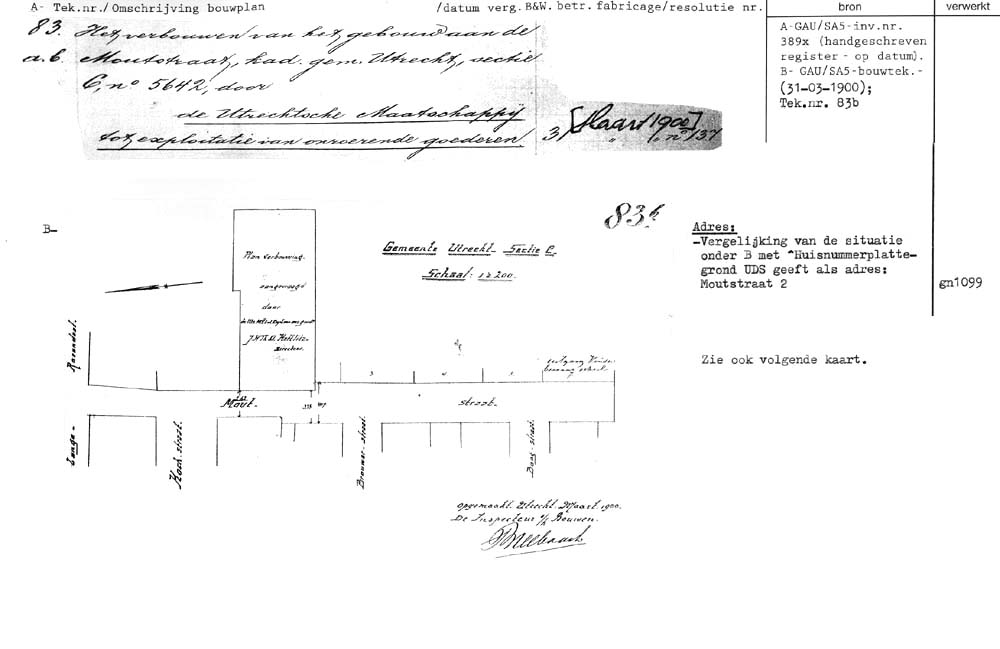 A- Tek.nr./ Omschrijving bouwplan /datum verg. B&W. betr. fabricage/resolutie nr.
bron
verwerkt
83. Het verbouwen van het gebouw aan de
a.b Moutstraat, kad. gem. Utrecht, sectie
C, no 5642, door
de Utrechtsche Maatschappij
tot exploitatie van onroerende goederen
31 Maart 1900
no 137
A-GAU/SA5-inv.nr.
389x (handgeschreven
register - op datum).
B- GAU/SA5-bouwtek.-
(31-03-1900);
Tek.nr. 83b
B-
83b
Gemeente Utrecht Sectie C.
Schaal: 1 à 200.
Plan verbouwing
aangevraagd
door
Directeur.
Adres:
-Vergelijking van de situatie
onder B met "Huisnummerplatte-
grond UDS geeft als adres:
Moutstraat 2
gn1099
Zie ook volgende kaart.
Rozendaal.
3
4
5
Mout- straat.
Lange-
Koch. straat.
Brouwer. straat.
straat.
opgemaakt. Utrecht. Maart. 1900.
De Inspecteur v/h Bouwen.